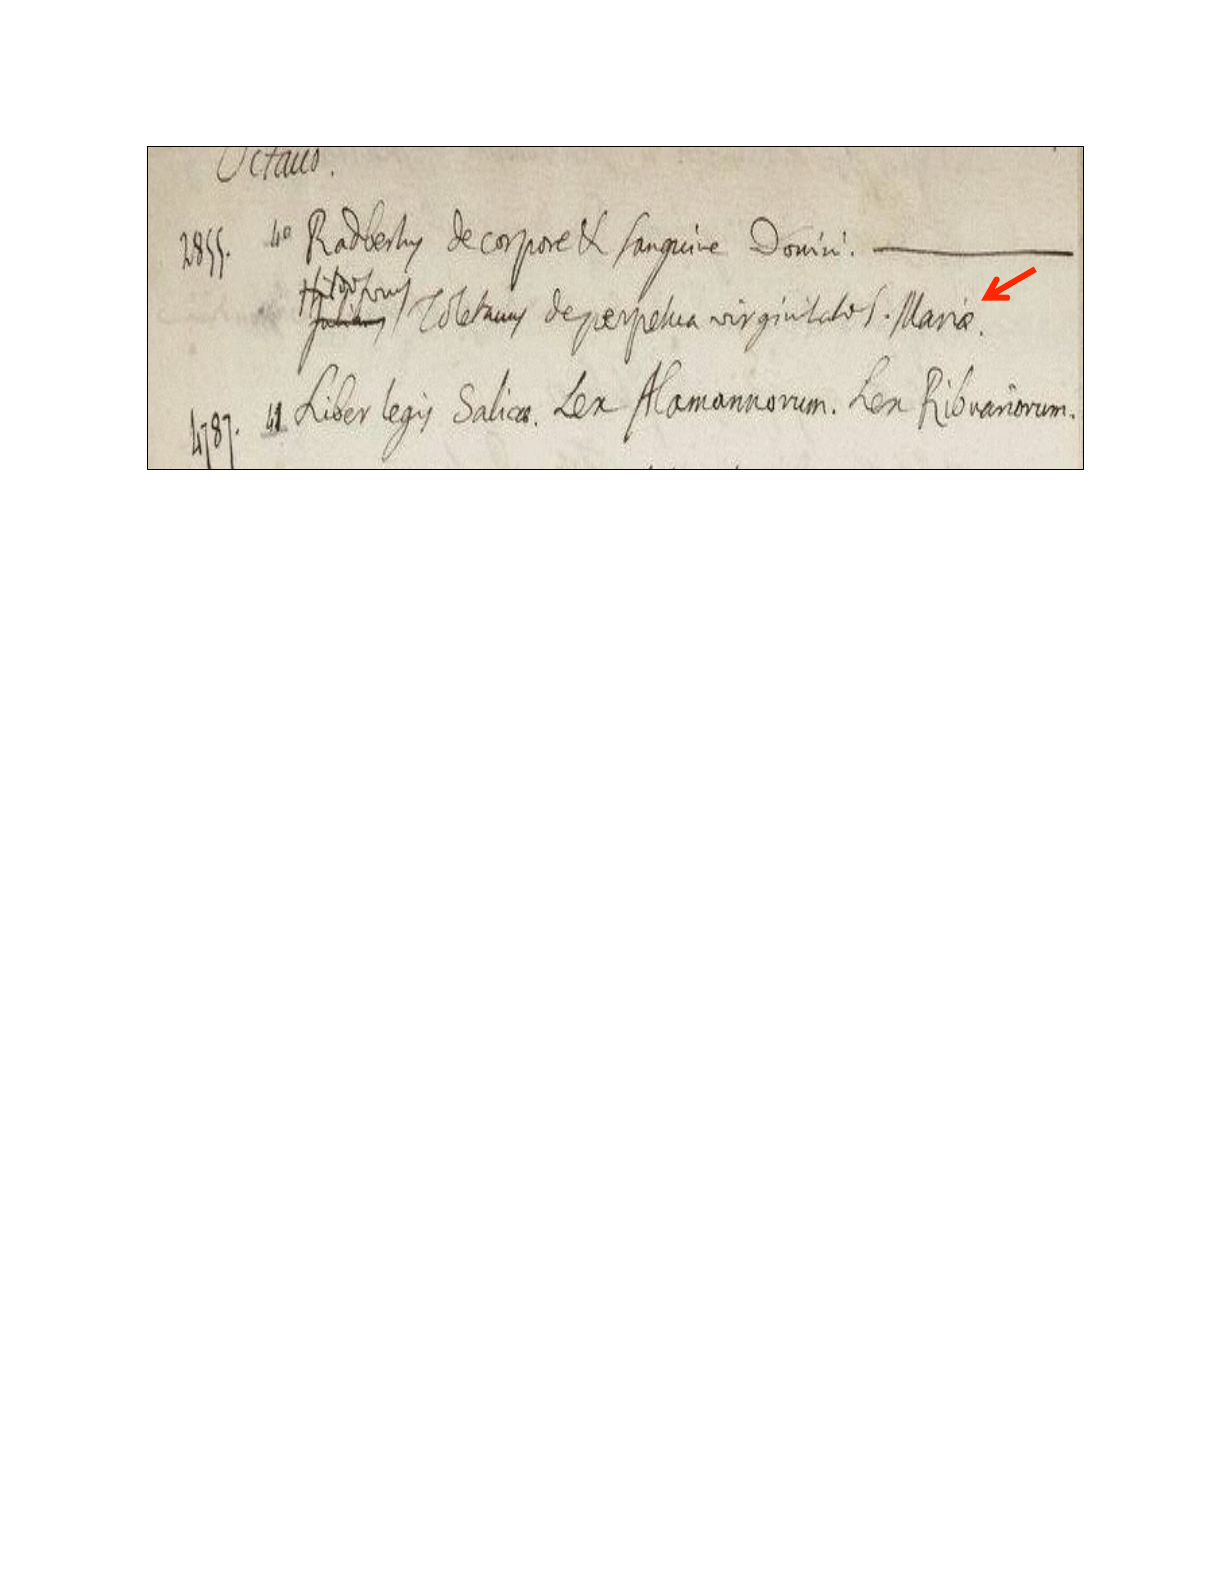 Octavo.
2855. 40 Radbertus de corpore & sanguine Domini.
Hildefonsus
Julianus Toletanus de perpetua virginitate S. Mariæ.
4787. 41 Liber legis Salicæ. Lex Alamannorum. Lex Ribuariorum.